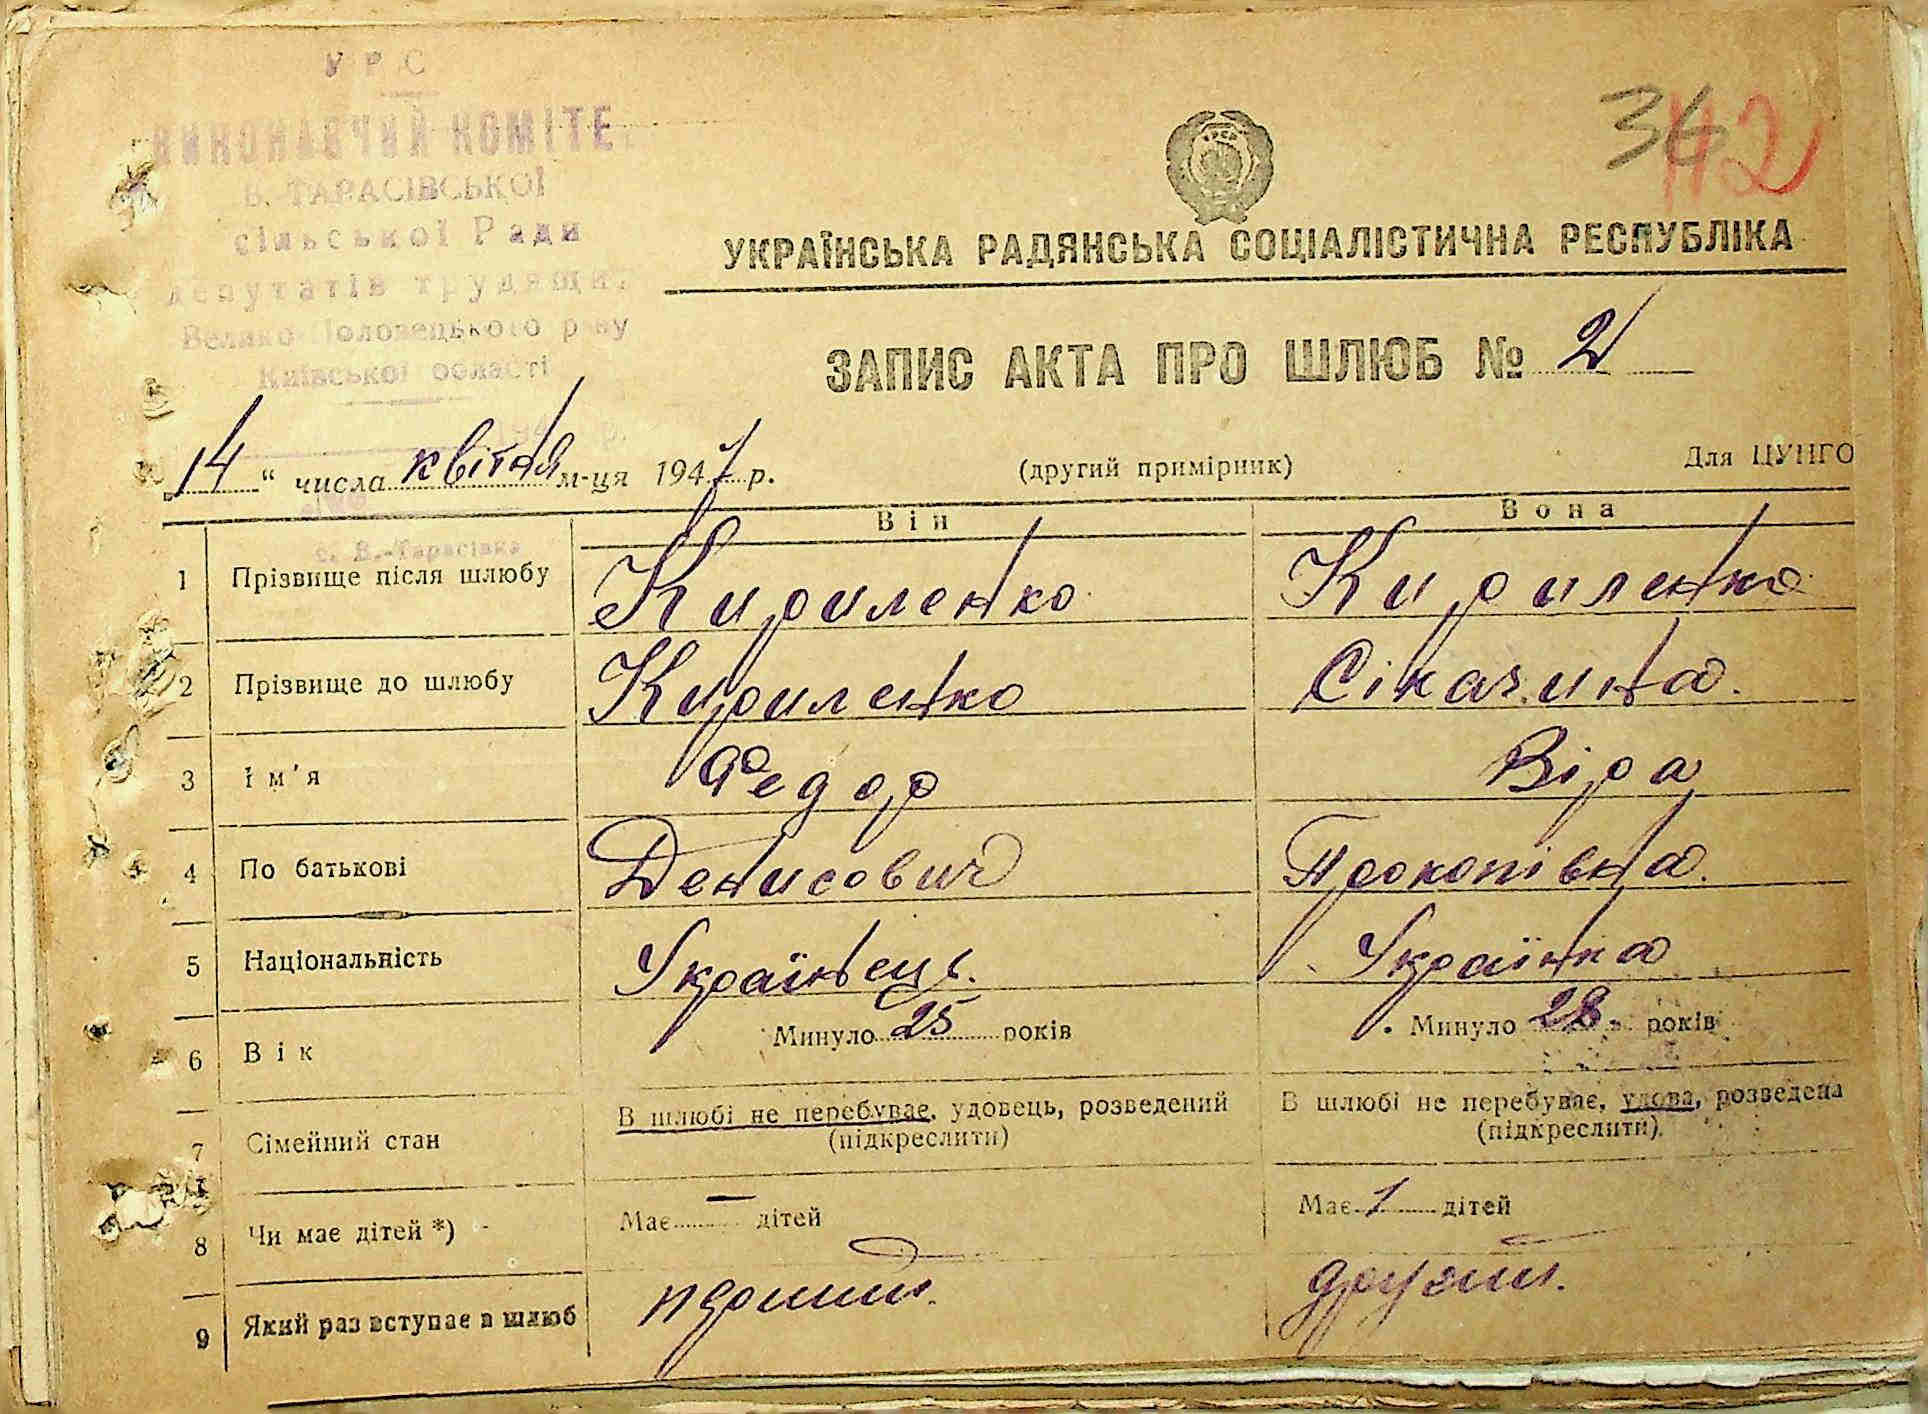 У Р С
ВИКОНАВЧИЙ КОМІТЕ
В. ТАРАСІВСЬКОЇ
сільської Ради
депутатів трудящих
Велико-Половецького р-ну
Київської області
34
112
УРСР
УКРАЇНСЬКА РАДЯНСЬКА СОЦІАЛІСТИЧНА РЕСПУБЛІКА
ЗАПИС АКТА ПРО ШЛЮБ № 2
„14“ числа квітня м-ця 1947 р.
(другий примірник)
Для ЦУНГО
с. В.-Тарасівка
Він
Вона
1 Прізвище після шлюбу Кириленко Кириленко
2 Прізвище до шлюбу Кириленко Сікачина.
3 Ім'я Федор Віра
4 По батькові Денисович Прокопівна.
5 Національність Українець. Українка
6 Вік Минуло 25 років Минуло 28. років
7 Сімейний стан В шлюбі не перебуває, удовець, розведений В шлюбі не перебуває, удова, розведена
(підкреслити) (підкреслити)
8 Чи має дітей *) Має — дітей Має 1 дітей
9 Який раз вступає в шлюб перший. другий.